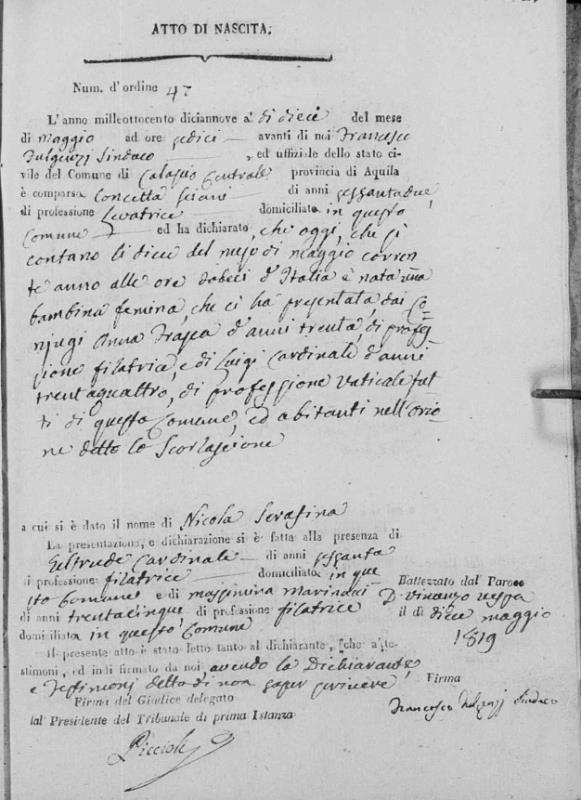 ATTO DI NASCITA;
Num. d'ordine 47
L'anno milleottocento diciannove a' di dieci del mese
di maggio ad ore sedici avanti di noi Francesco
Fulgenzj Sindaco ed uffiziale dello stato ci-
vile del Comune di Calascio Centrale provincia di Aquila
è comparsa Concetta di anni sessantadue
di professione Levatrice domiciliata in questo
Comune ed ha dichiarato, che oggi, che si
contano li dieci del mese di maggio corren
te anno alle ore dodeci d'Italia è nata una
bambina femina, che ci ha presentata, dai Co-
njugi Anna Frasca d'anni trenta, di profes
sione filatrice, e di Luigi Cardinale d'anni
trentaquattro, di professione Vaticale tut
ti di questo Comune, ed abitanti nell'orio
ne detto lo
a cui si è dato il nome di Nicola Serafina
La presentazione, e dichiarazione si è fatta alla presenza di
Geltrude Cardinale di anni sessanta
di professione filatrice domiciliata in que
sto Comune e di Massimira Marinacci
di anni trentacinque di professione filatrice
domiciliata in questo Comune
Battezzato dal Paroco
D. Vincenzo
il dì dieci maggio
1819
Il presente atto è stato letto tanto al dichiarante, che a' te-
stimonj, ed indi firmato da noi avendo la Dichiarante,
e Testimonj detto di non saper scrivere
Firma del Giudice delegato
dal Presidente del Tribunale di prima Istanza
Firma
Francesco Fulgenzj Sindaco
Piccioli